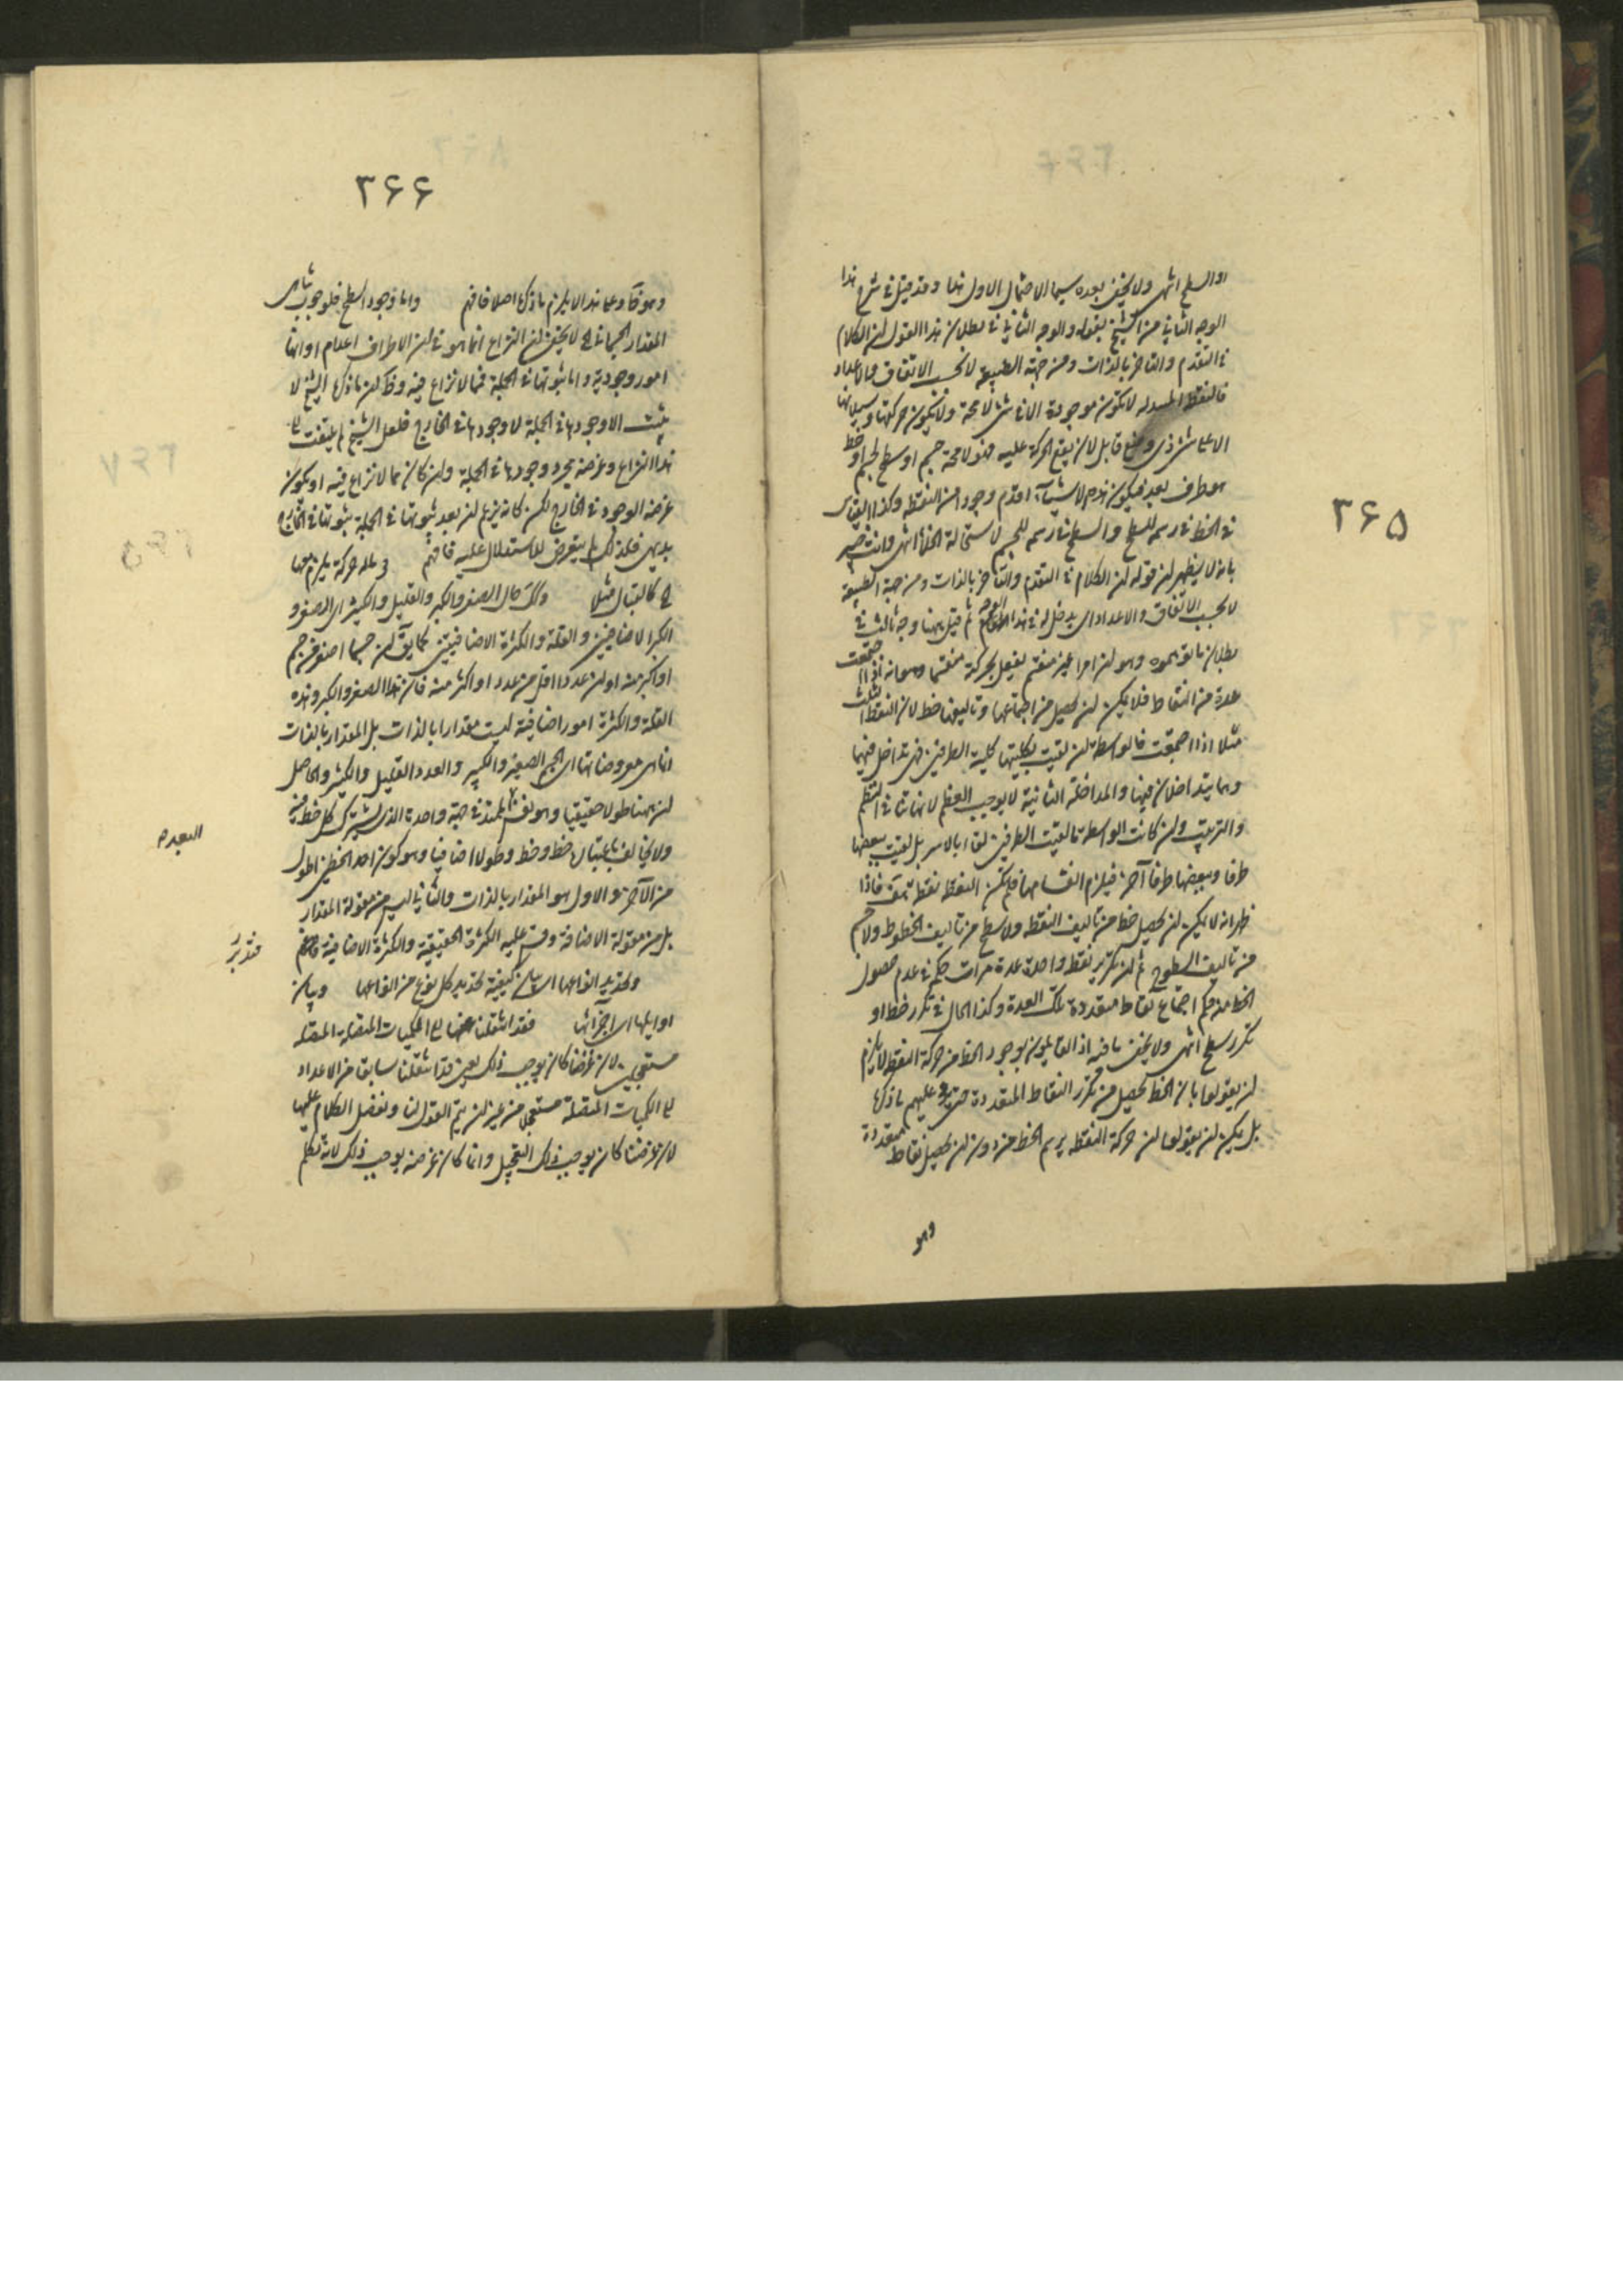 ۳۶۵
او السطح انتهى ولا يخفى بعده سيما الاحتمال الاول هذا وقد قيل في شرح هذا
الوجه الثاني من الشيخ بقوله والوجه الثاني في بطلان هذا القول ان الكلام
في التقدم والتاخر بالذات ومن جهة الطبيعة لا بحسب الاتفاق والاعداد
فالنقطة لا تكون موجودة الا في شيء لامحة ولا يكون حركتها وسيلانها
الا على شيء ذي وضع قابل لان يقع الحركة عليه فهو لامحة جسم او سطح لجسم او خط
هو طرف بعد فيكون هذه الاشياء اقدم وجودا من النقطة وكذا القياس
في الخط في رسمه للسطح والسطح في رسمه للجسم لاستحالة الخلأ انتهى وانت خبير
بانه لا يظهر لان قوله ان الكلام في التقدم والتاخر بالذات ومن جهة الطبيعة
لا بحسب الاتفاق والاعداد اي مدخل له في هذا الوجه ثم قيل ههنا وجه ثالث في
بطلان ما توهموه وهو ان امرا غير منقسم يفعل بحركة منقسما وهو انه اذا اجتمعت
عدة من النقاط فلا يمكن ان يحصل من اجتماعها وتاليفها خط لان النقط الثلث
مثلا اذا اجتمعت فالواسطة ان لقيت بكليتها كلية الطرفين فهي تداخل فيهما
وهما يتداخلان فيها والمداخلة الثانية لا يوجب العظم لانهاتنا في النظم
والترتيب وان كانت الواسطة ما لقيت الطرفين لقاء بالاسر بل لقيت ببعضها
طرفا وببعضها طرفا آخر فيلزم انقسامها فلم يكن النقطة نقطة هف فاذا
ظهر انه لا يمكن ان يحصل خط من تاليف النقط ولا سطح من تاليف الخطوط ولا جسم
من تاليف السطوح ثم ان تكرير نقطة واحدة عدة مرات حكمه في عدم حصول
الخط منه حكم اجتماع نقاط متعددة بتلك العدة وكذا الحال في تكرر خط او
تكرر سطح انتهى ولا يخفى ما فيه اذ القايلون بوجود الخط من حركة النقطة لا يلزم
ان يقولوا بان الخط يحصل من تكرر النقاط المتعددة حتى يرد عليهم ما ذكره
بل يمكن ان يقولوا ان حركة النقطة يرسم الخط من دون ان يحصل نقاط متعددة
وهو
۳۶۶
وهو وعلى هذا لا يلزم ما ذكره اصلا فافهم واما وجود السطح فلوجوب تناهي
المقدار الجسماني لا يخفى ان النزاع انما هو في ان الاطراف اعدام او انها
امور وجودية واما ثبوتها في الجملة فمما لا نزاع فيه وظ ان ما ذكره الشيخ لا
يثبت الا وجودها في الجملة لا وجودها في الخارج فلعل الشيخ لم يلتفت الى
هذا النزاع وغرضه مجرد وجودها في الجملة وان كان مما لا نزاع فيه او يكون
غرضه الوجود في الخارج لكن كانه يزعم ان بعد ثبوتها في الجملة ثبوتها في الخارج
بديهي فلذلك لم يتعرض للاستدلال عليه فافهم حركة يلزم معها
كالقبال مثلا وكك حال الصغر والكبر والقليل والكثير اي الصغر و
الكبر الاضافيين والقلة والكثرة الاضافيتين كما يق ان جسما اصغر من جسم
او اكبر منه او ان عددا اقل من عدد او اكثر منه فان هذا الصغر والكبر وهذه
القلة والكثرة امور اضافية ليست مقدارا بالذات بل المقدار بالذات
انما هي معروضاتها اي الجسم الصغير والكبير والعدد القليل والكثير والحاصل
ان ههنا طولا حقيقيا وهو نفس الممتد في جهة واحدة الذي يشترك كل خط فيه
ولا يخالف باعتباره خط وخط وطولا اضافيا وهو كون احد الخطين اطول
من الآخر والاول هو المقدار بالذات والثاني ليس من مقولة المقدار
بل من مقولة الاضافة وقس عليه الكثرة الحقيقية والكثرة الاضافية
فتدبر
وتحديد انواعها اي بيان كيفية تحديد كل نوع من انواعها وبيان
اوايلها اي اجزائها فقد انتقلنا الى الكميات المتصلة
مستعجلين لان غرضنا كان يوجب ذلك يعني قد انتقلنا سابقا من الاعداد
الى الكميات المتصلة مستعجلا من غير ان يتم القول لنا ونفصل الكلام عليها
لان غرضنا كان يوجب ذلك التعجيل وانما كان غرضه يوجب ذلك لانه تكلم